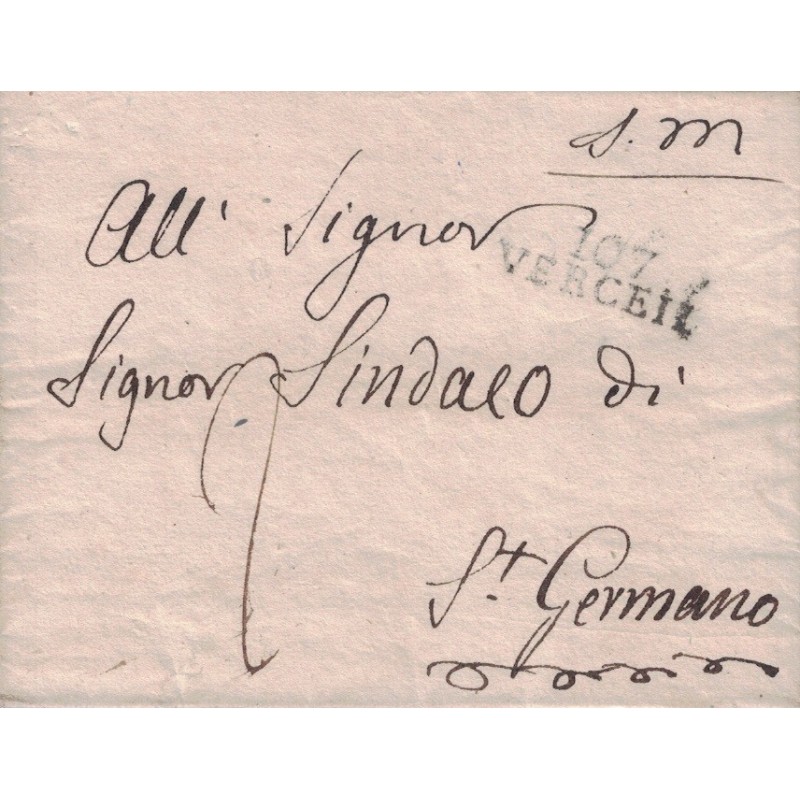 S. M
All' Signor
107
VERCEIL
Signor Sindaco di
St. Germano